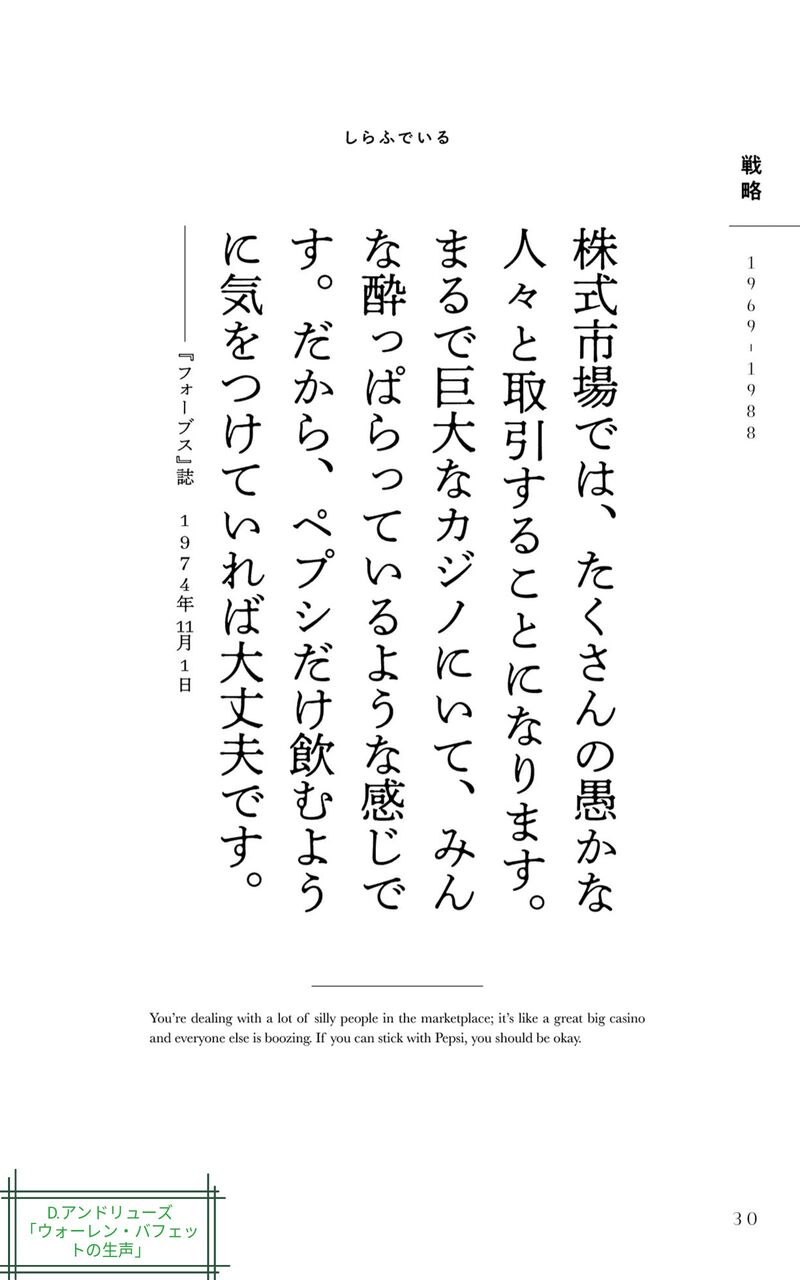 しらふでいる
戦略
1969-1988
株式市場では、たくさんの愚かな
人々と取引することになります。
まるで巨大なカジノにいて、みん
な酔っぱらっているような感じで
す。だから、ペプシだけ飲むよう
に気をつけていれば大丈夫です。
――『フォーブス』誌 1974年11月1日
You’re dealing with a lot of silly people in the marketplace; it’s like a great big casino
and everyone else is boozing. If you can stick with Pepsi, you should be okay.
D.アンドリューズ
「ウォーレン・バフェッ
トの生声」
30